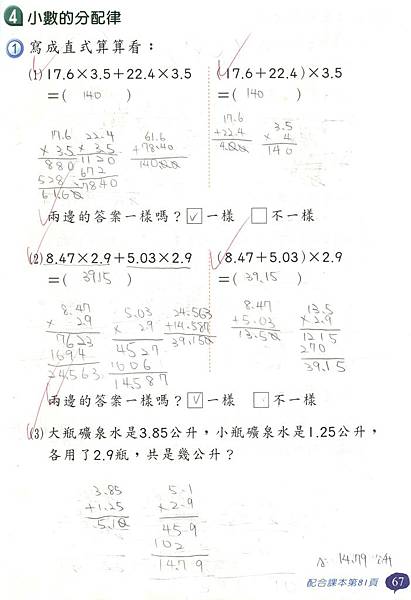 4 小數的分配律
1 寫成直式算算看：
(1) 17.6×3.5＋22.4×3.5 (17.6＋22.4)×3.5
＝( 140 ) ＝( 140 )
17.6 22.4 61.6 17.6 3.5
× 3.5 × 3.5 +78.40 +22.4 × 4
880 1120 140.00 4.0.0 140
528 672
61.60 78.40
兩邊的答案一樣嗎？☑一樣 □不一樣
(2) 8.47×2.9＋5.03×2.9 (8.47＋5.03)×2.9
＝( 39.15 ) ＝( 39.15 )
8.47 5.03 24.563 8.47 13.5
× 2.9 × 2.9 +14.587 +5.03 × 2.9
7623 4527 39.150 13.50 1215
1694 1006 270
24.563 14.587 39.15
兩邊的答案一樣嗎？☑一樣 □不一樣
(3) 大瓶礦泉水是3.85公升，小瓶礦泉水是1.25公升，
各用了2.9瓶，共是幾公升？
3.85 5.1
+1.25 × 2.9
5.10 459
102
14.79
A: 14.79
配合課本第81頁 67